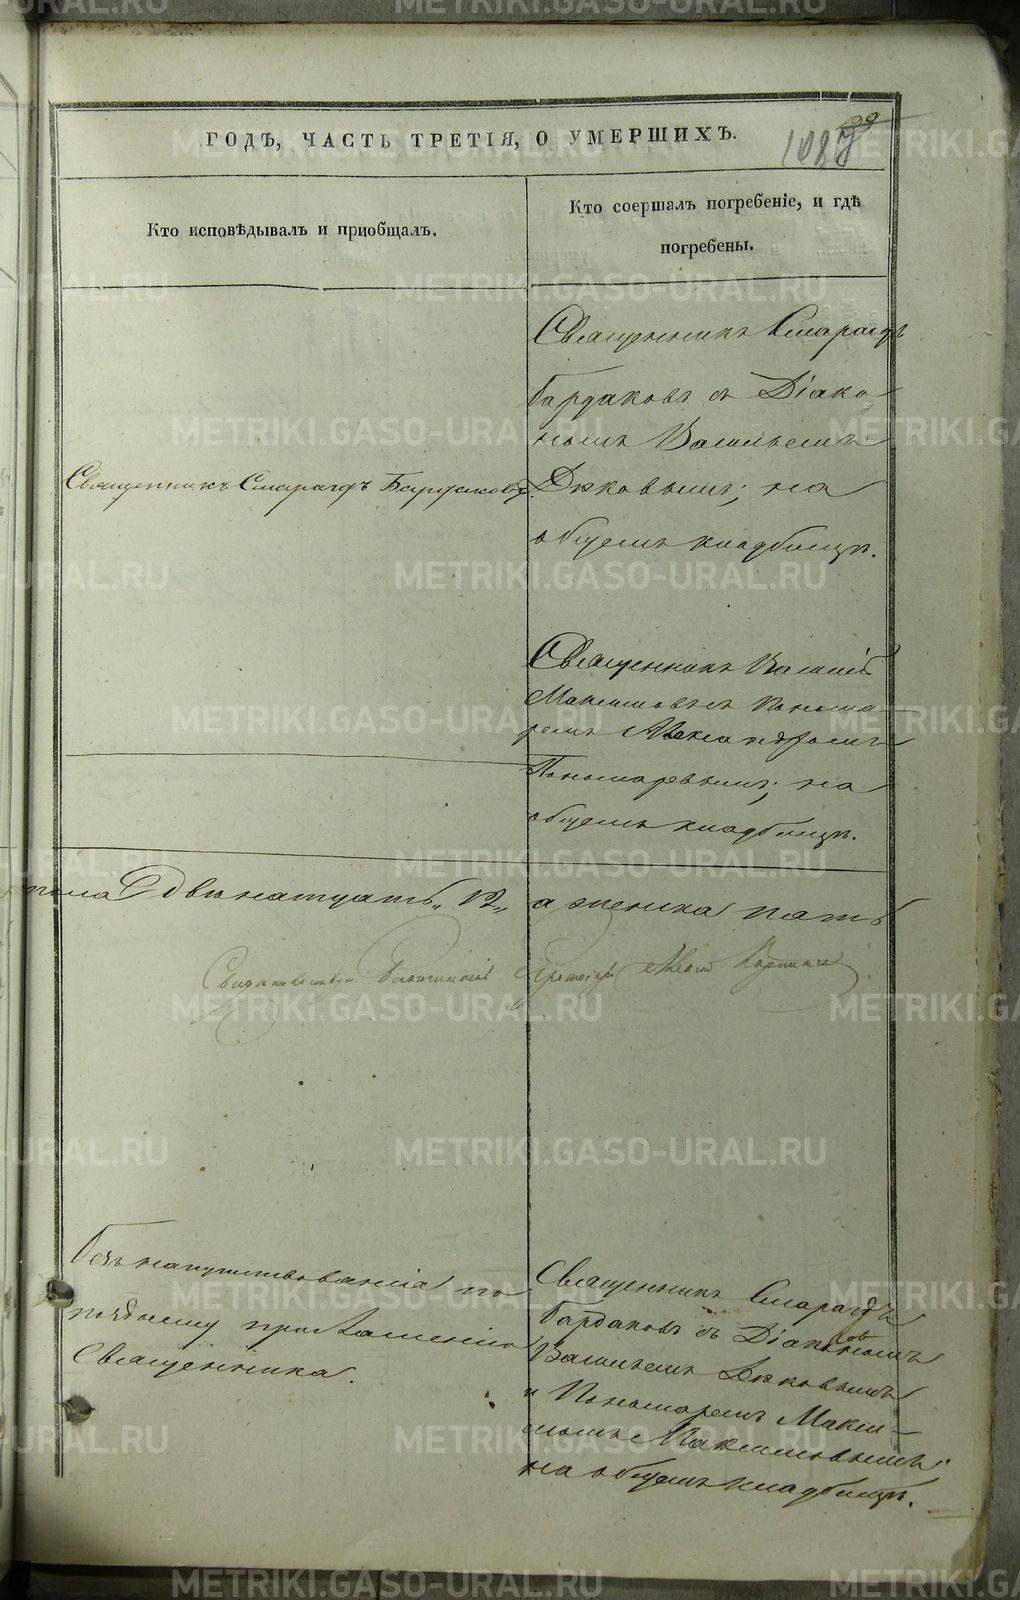 ГОДЪ, ЧАСТЬ ТРЕТІЯ, О УМЕРШИХЪ.
1087
99
Кто исповѣдывалъ и пріобщалъ.
Кто соершалъ погребеніе, и гдѣ
погребены.
Священникъ Смарагдъ Бардаковъ.
Священникъ Смарагдъ
Бардаковъ съ Діако
номъ Васильемъ
на
общемъ кладбищѣ.
Священникъ Василій
Максимовъ съ Понома
ремъ Александромъ
Пономаревымъ; на
общемъ кладбищѣ.
пола Двѣнатцать „12„ а женска пять
Благочинный Протоіерей
Безъ напутствованія по
позднему приглашенію
Священника.
Священникъ Смарагдъ
Бардаковъ съ Діакономъ
Васильемъ
и Пономаремъ Макси-
момъ Максимовымъ;
на общемъ кладбищѣ.
METRIKI.GASO-URAL.RU